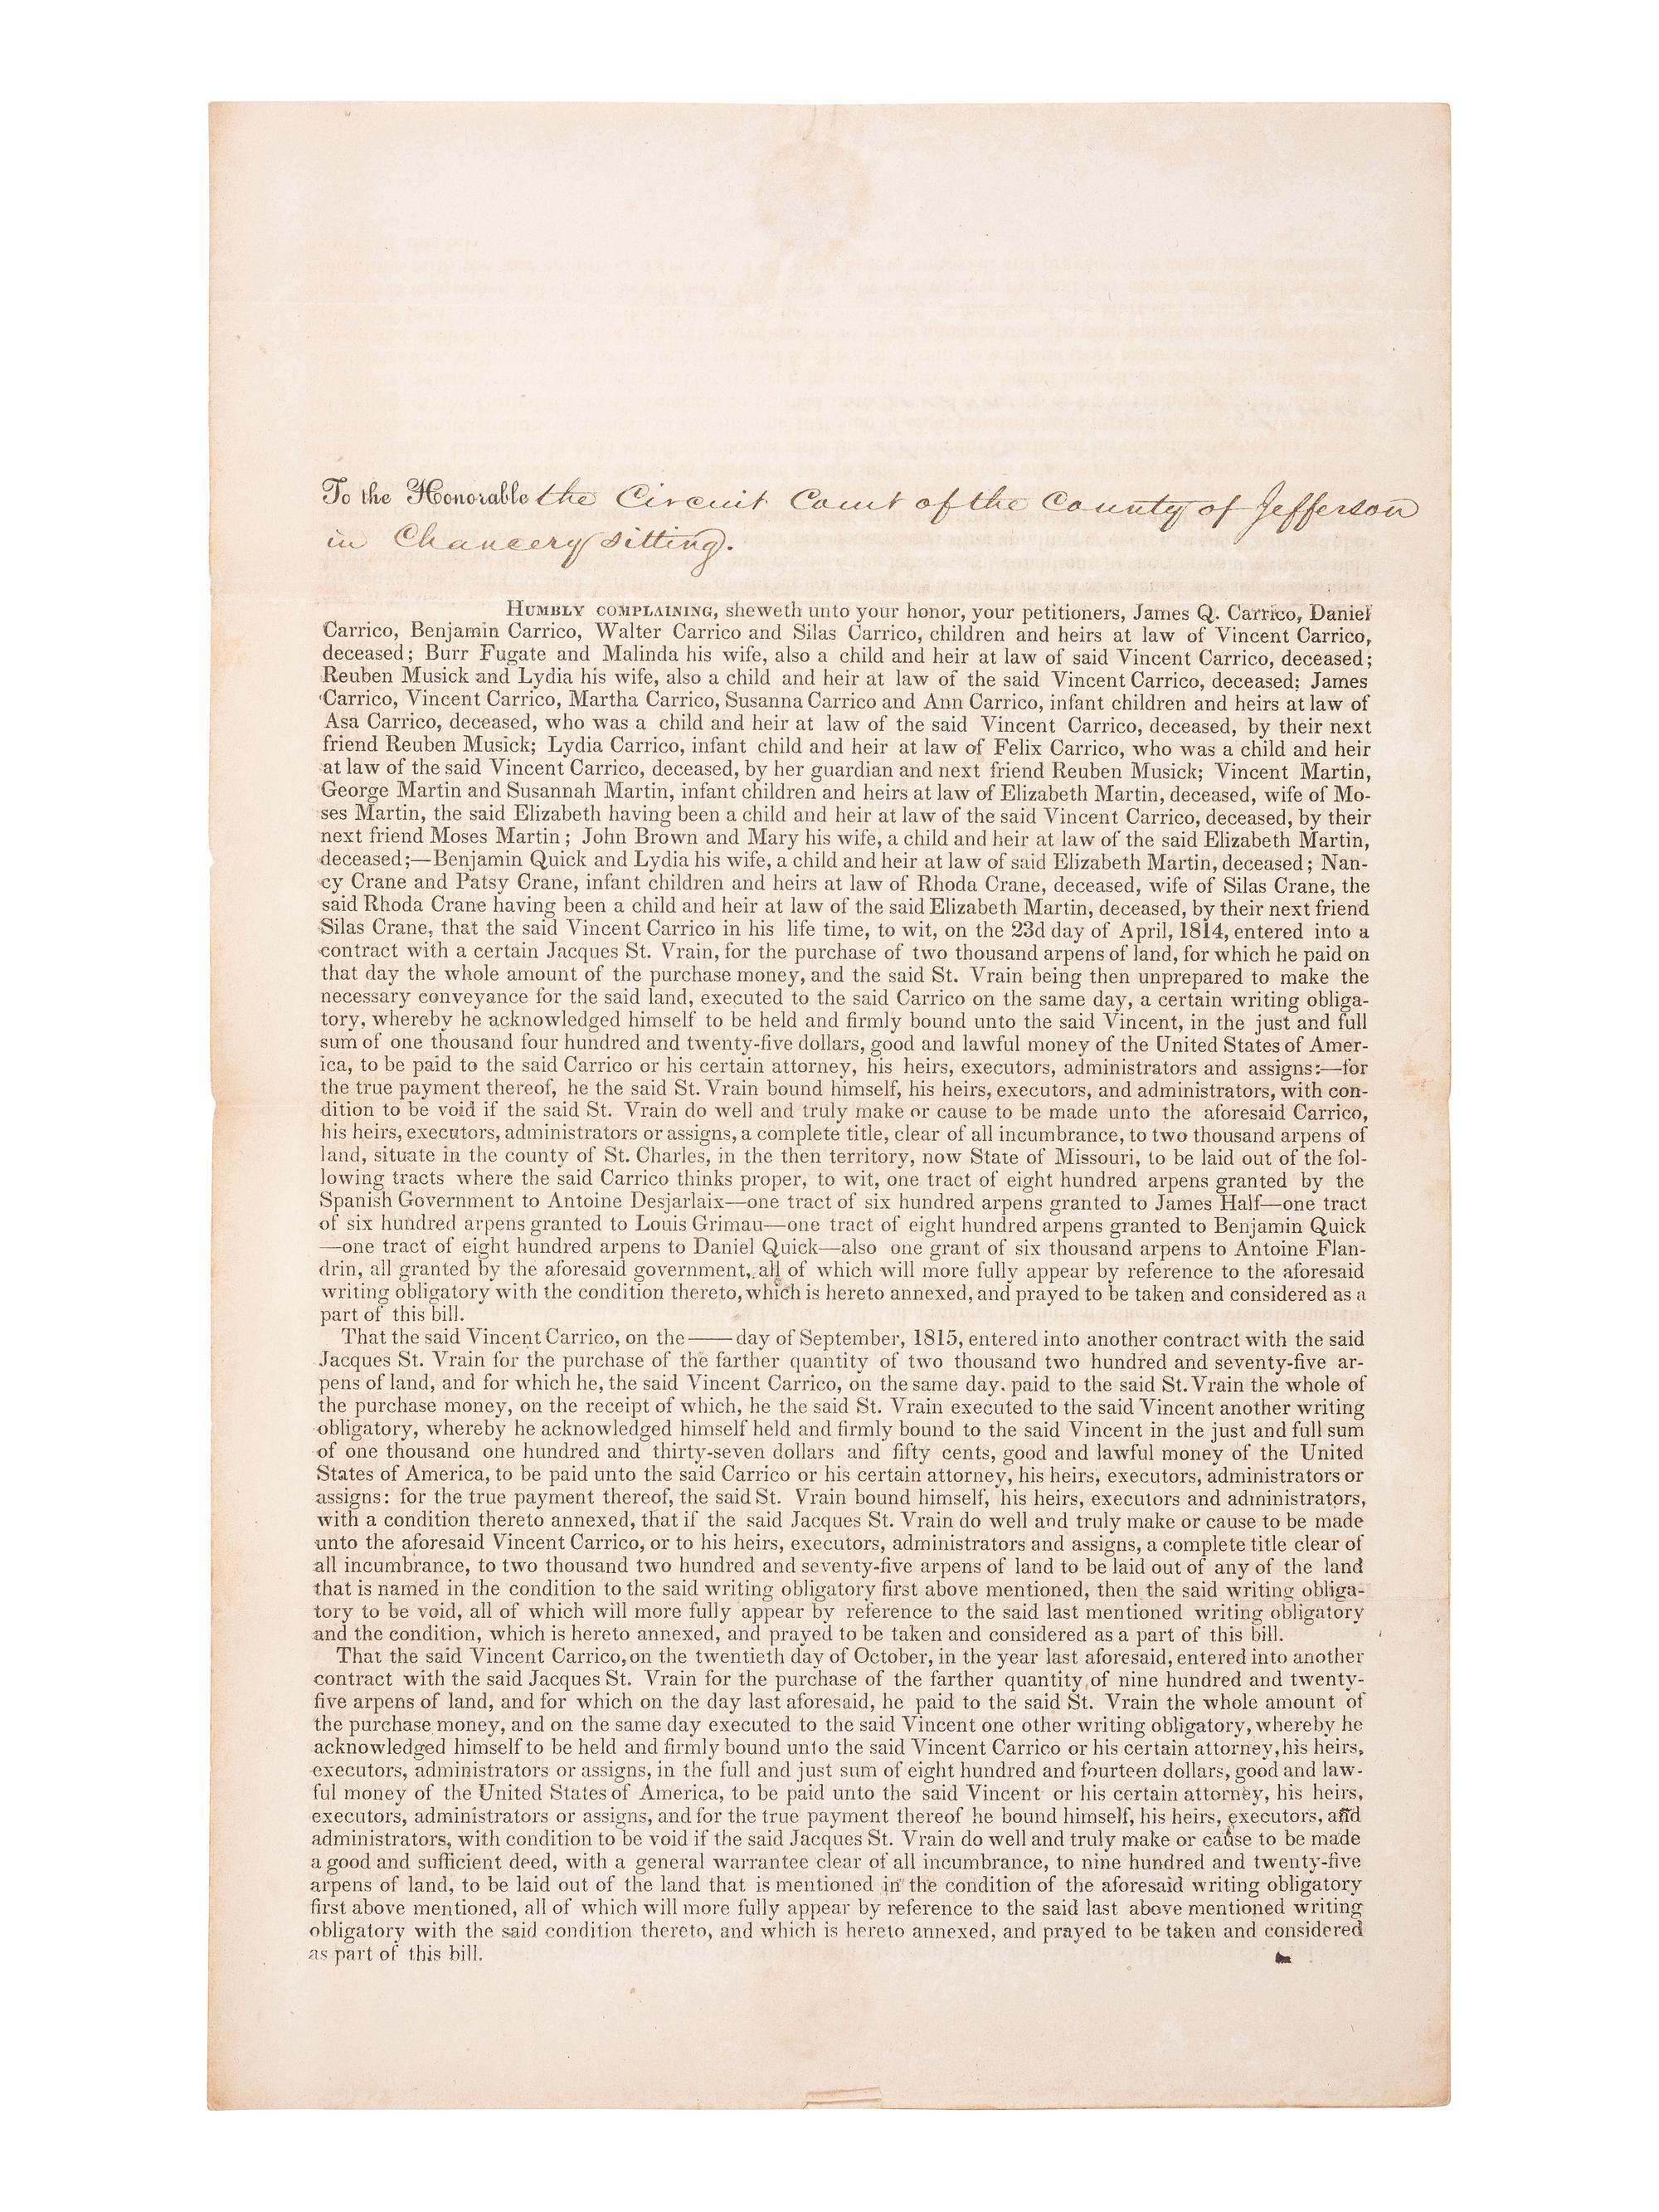 To the Honorable the Circuit Court of the County of Jefferson
in Chancery sitting.
HUMBLY COMPLAINING, sheweth unto your honor, your petitioners, James Q. Carrico, Daniel
Carrico, Benjamin Carrico, Walter Carrico and Silas Carrico, children and heirs at law of Vincent Carrico,
deceased; Burr Fugate and Malinda his wife, also a child and heir at law of said Vincent Carrico, deceased;
Reuben Musick and Lydia his wife, also a child and heir at law of the said Vincent Carrico, deceased; James
Carrico, Vincent Carrico, Martha Carrico, Susanna Carrico and Ann Carrico, infant children and heirs at law of
Asa Carrico, deceased, who was a child and heir at law of the said Vincent Carrico, deceased, by their next
friend Reuben Musick; Lydia Carrico, infant child and heir at law of Felix Carrico, who was a child and heir
at law of the said Vincent Carrico, deceased, by her guardian and next friend Reuben Musick; Vincent Martin,
George Martin and Susannah Martin, infant children and heirs at law of Elizabeth Martin, deceased, wife of Mo-
ses Martin, the said Elizabeth having been a child and heir at law of the said Vincent Carrico, deceased, by their
next friend Moses Martin; John Brown and Mary his wife, a child and heir at law of the said Elizabeth Martin,
deceased;—Benjamin Quick and Lydia his wife, a child and heir at law of said Elizabeth Martin, deceased; Nan-
cy Crane and Patsy Crane, infant children and heirs at law of Rhoda Crane, deceased, wife of Silas Crane, the
said Rhoda Crane having been a child and heir at law of the said Elizabeth Martin, deceased, by their next friend
Silas Crane, that the said Vincent Carrico in his life time, to wit, on the 23d day of April, 1814, entered into a
contract with a certain Jacques St. Vrain, for the purchase of two thousand arpens of land, for which he paid on
that day the whole amount of the purchase money, and the said St. Vrain being then unprepared to make the
necessary conveyance for the said land, executed to the said Carrico on the same day, a certain writing obliga-
tory, whereby he acknowledged himself to be held and firmly bound unto the said Vincent, in the just and full
sum of one thousand four hundred and twenty-five dollars, good and lawful money of the United States of Amer-
ica, to be paid to the said Carrico or his certain attorney, his heirs, executors, administrators and assigns:—for
the true payment thereof, he the said St. Vrain bound himself, his heirs, executors, and administrators, with con-
dition to be void if the said St. Vrain do well and truly make or cause to be made unto the aforesaid Carrico,
his heirs, executors, administrators or assigns, a complete title, clear of all incumbrance, to two thousand arpens of
land, situate in the county of St. Charles, in the then territory, now State of Missouri, to be laid out of the fol-
lowing tracts where the said Carrico thinks proper, to wit, one tract of eight hundred arpens granted by the
Spanish Government to Antoine Desjarlaix—one tract of six hundred arpens granted to James Half—one tract
of six hundred arpens granted to Louis Grimau—one tract of eight hundred arpens granted to Benjamin Quick
—one tract of eight hundred arpens to Daniel Quick—also one grant of six thousand arpens to Antoine Flan-
drin, all granted by the aforesaid government, all of which will more fully appear by reference to the aforesaid
writing obligatory with the condition thereto, which is hereto annexed, and prayed to be taken and considered as a
part of this bill.
That the said Vincent Carrico, on the —— day of September, 1815, entered into another contract with the said
Jacques St. Vrain for the purchase of the farther quantity of two thousand two hundred and seventy-five ar-
pens of land, and for which he, the said Vincent Carrico, on the same day. paid to the said St. Vrain the whole of
the purchase money, on the receipt of which, he the said St. Vrain executed to the said Vincent another writing
obligatory, whereby he acknowledged himself held and firmly bound to the said Vincent in the just and full sum
of one thousand one hundred and thirty-seven dollars and fifty cents, good and lawful money of the United
States of America, to be paid unto the said Carrico or his certain attorney, his heirs, executors, administrators or
assigns: for the true payment thereof, the said St. Vrain bound himself, his heirs, executors and administrators,
with a condition thereto annexed, that if the said Jacques St. Vrain do well and truly make or cause to be made
unto the aforesaid Vincent Carrico, or to his heirs, executors, administrators and assigns, a complete title clear of
all incumbrance, to two thousand two hundred and seventy-five arpens of land to be laid out of any of the land
that is named in the condition to the said writing obligatory first above mentioned, then the said writing obliga-
tory to be void, all of which will more fully appear by reference to the said last mentioned writing obligatory
and the condition, which is hereto annexed, and prayed to be taken and considered as a part of this bill.
That the said Vincent Carrico, on the twentieth day of October, in the year last aforesaid, entered into another
contract with the said Jacques St. Vrain for the purchase of the farther quantity of nine hundred and twenty-
five arpens of land, and for which on the day last aforesaid, he paid to the said St. Vrain the whole amount of
the purchase money, and on the same day executed to the said Vincent one other writing obligatory, whereby he
acknowledged himself to be held and firmly bound unto the said Vincent Carrico or his certain attorney, his heirs,
executors, administrators or assigns, in the full and just sum of eight hundred and fourteen dollars, good and law-
ful money of the United States of America, to be paid unto the said Vincent or his certain attorney, his heirs,
executors, administrators or assigns, and for the true payment thereof he bound himself, his heirs, executors, and
administrators, with condition to be void if the said Jacques St. Vrain do well and truly make or cause to be made
a good and sufficient deed, with a general warrantee clear of all incumbrance, to nine hundred and twenty-five
arpens of land, to be laid out of the land that is mentioned in the condition of the aforesaid writing obligatory
first above mentioned, all of which will more fully appear by reference to the said last above mentioned writing
obligatory with the said condition thereto, and which is hereto annexed, and prayed to be taken and considered
as part of this bill.